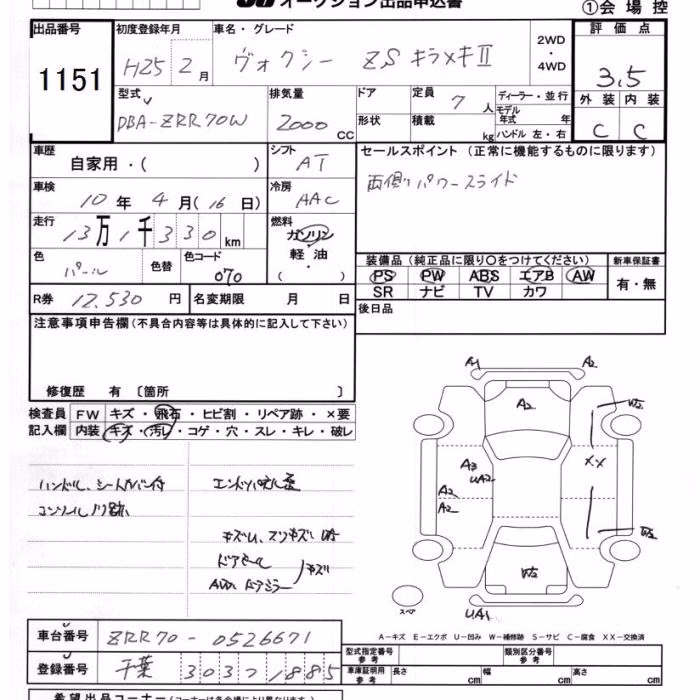 オークション出品申込書
①会場控
出品番号
1151
初度登録年月
H25 2月
車名・グレード
ヴォクシー ZS キラメキⅡ
2WD・4WD
評価点
3.5
外装 内装
C C
型式
DBA-ZRR70W
排気量
2000 CC
ドア
形状
定員 7人
積載 kg
ディーラー・並行
モデル年式 年
ハンドル 左・右
車歴
自家用・( )
シフト
AT
車検
10年4月(16日)
冷房
AAC
走行
13万1千330km
燃料
ガソリン
軽油・
( )
色
パール
色替
色コード
070
R券 12,530円
名変期限 月 日
セールスポイント (正常に機能するものに限ります)
両側パワースライド
装備品 (純正品に限り〇をつけてください)
PS PW ABS エアB AW
SR ナビ TV カワ
新車保証書
有・無
後日品
注意事項申告欄(不具合内容等は具体的に記入して下さい)
修復歴 有〔箇所 〕
検査員記入欄
FW キズ・飛石・ヒビ割・リペア跡・×要
内装 キズ・汚レ・コゲ・穴・スレ・キレ・破レ
ハンドル、シートカバー付
コンソールノリ跡
キズU、スリキズ
ドアモール
ドアミラー
キズ
A1 A2
A2
W2
A3
UA2
XX
A2
A2
W2
W2
UA1
スペア
A-キズ E-エクボ U-凹み W-補修跡 S-サビ C-腐食 XX-交換済
車台番号 ZRR70-0526671
登録番号 千葉 303 つ 1885
型式指定番号 参考
類別区分番号 参考
車庫証明用 参考 長さ cm 幅 cm 高さ cm
希望出品コーナー